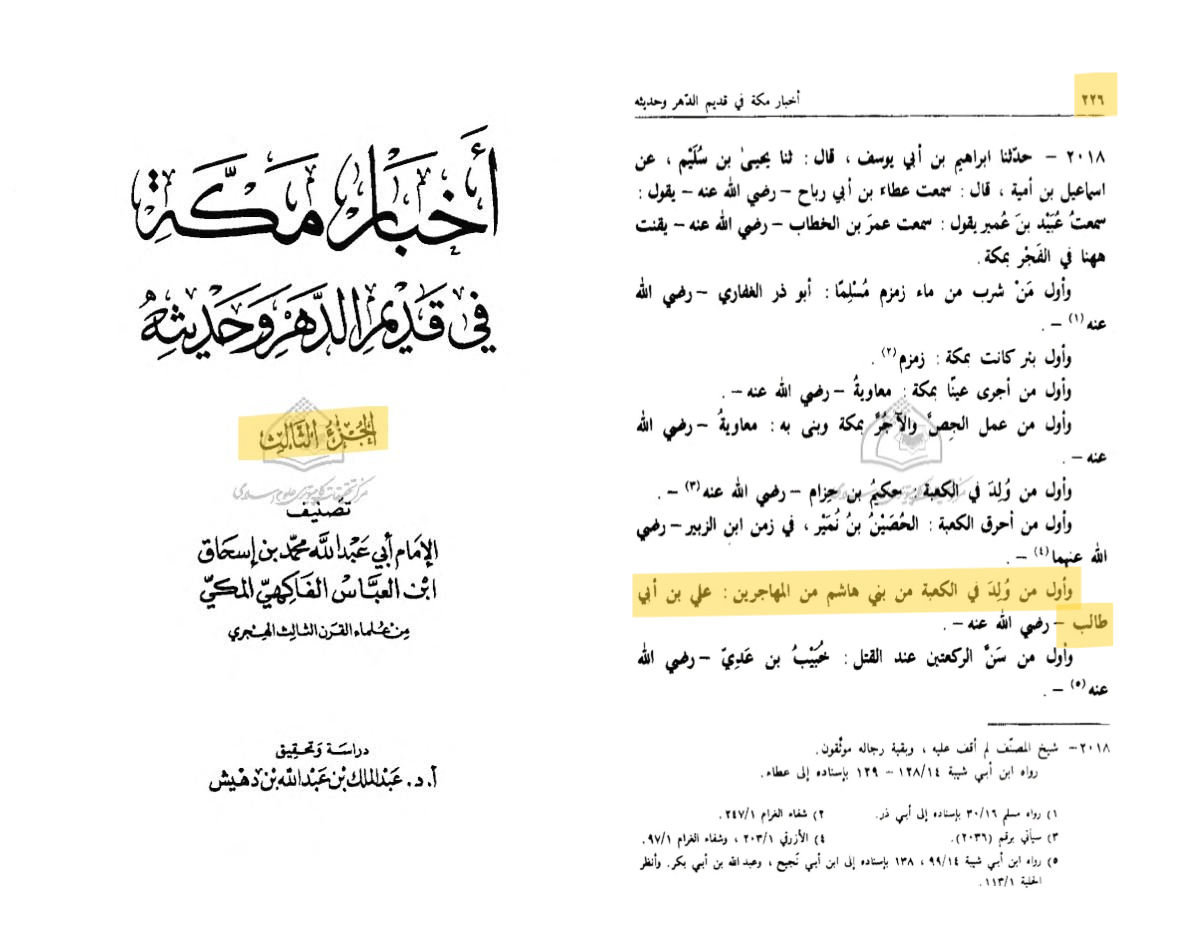 أخبار مكة
في قديم الدهر وحديثه
الجزء الثالث
مركز تحقيقات كامپيوترى علوم اسلامى
تصنيف
الإمام أبي عبد الله محمد بن إسحاق
ابن العباس الفاكهي المكي
من علماء القرن الثالث الهجري
دراسة وتحقيق
أ. د. عبد الملك بن عبد الله بن دهيش
٢٢٦
أخبار مكة في قديم الدهر وحديثه
٢٠١٨ – حدّثنا ابراهيم بن أبي يوسف ، قال : ثنا يحيىٰ بن سُلَيْم ، عن
اسماعيل بن أمية ، قال : سمعت عطاء بن أبي رباح – رضي الله عنه – يقول :
سمعتُ عُبَيْد بنَ عُمير يقول : سمعت عمرَ بن الخطاب – رضي الله عنه – يقنت
ههنا في الفَجْر بمكة .
وأول مَنْ شرب من ماء زمزم مُسْلِمًا : أبو ذر الغفاري – رضي الله
عنه (١) – .
وأول بئر كانت بمكة : زمزم (٢) .
وأول من أجرى عينًا بمكة : معاويةُ – رضي الله عنه – .
وأول من عمل الجِصَّ والآجُرَّ بمكة وبنى به : معاويةُ – رضي الله
عنه – .
وأول من وُلِدَ في الكعبة : حكيمُ بن حِزام – رضي الله عنه (٣) – .
وأول من أحرق الكعبة : الحُصَيْنُ بنُ نُمَيْر ، في زمن ابن الزبير – رضي
الله عنهما (٤) – .
وأول من وُلِدَ في الكعبة من بني هاشم من المهاجرين : علي بن أبي
طالب – رضي الله عنه – .
وأول من سَنَّ الركعتين عند القتل : خُبَيْبُ بن عَدِيّ – رضي الله
عنه (٥) – .
٢٠١٨– شيخ المصنّف لم أقف عليه ، وبقية رجاله موثّقون .
رواه ابن أبي شيبة ١٢٨/١٤ – ١٢٩ بإسناده إلى عطاء .
١) رواه مسلم ٣٠/١٦ بإسناده إلى أبي ذر . ٢) شفاء الغرام ٢٤٧/١ .
٣) سيأتي برقم (٢٠٣٦) . ٤) الأزرقي ٢٠٣/١ ، وشفاء الغرام ٩٧/١ .
٥) رواه ابن أبي شيبة ٩٩/١٤ ، ١٣٨ بإسناده إلى ابن أبي نُجيح ، وعبد الله بن أبي بكر . وأنظر
الحلية ١١٣/١ .